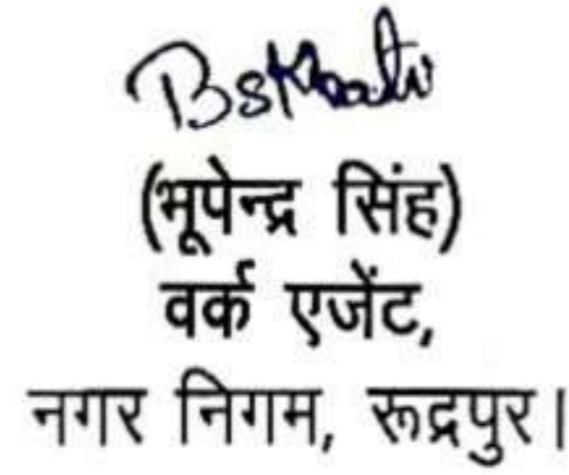 (भूपेन्द्र सिंह)
वर्क एजेंट,
नगर निगम, रूद्रपुर।